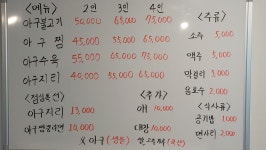 <메뉴> 2인 3인 4인 <주류>
아구불고기 50,000 65,000 75,000 소주 5,000
아구찜 45,000 55,000 65,000 맥주 5,000
아구수육 55,000 65,000 75,000 막걸리 3,000
아구지리 40,000 55,000 65,000 음료수 2,000
<점심특선> <추가> <식사류>
아구지리 13,000 10,000 공기밥 1,000
10,000 대창 10,000 면사리 2,000
X 아구(생물)